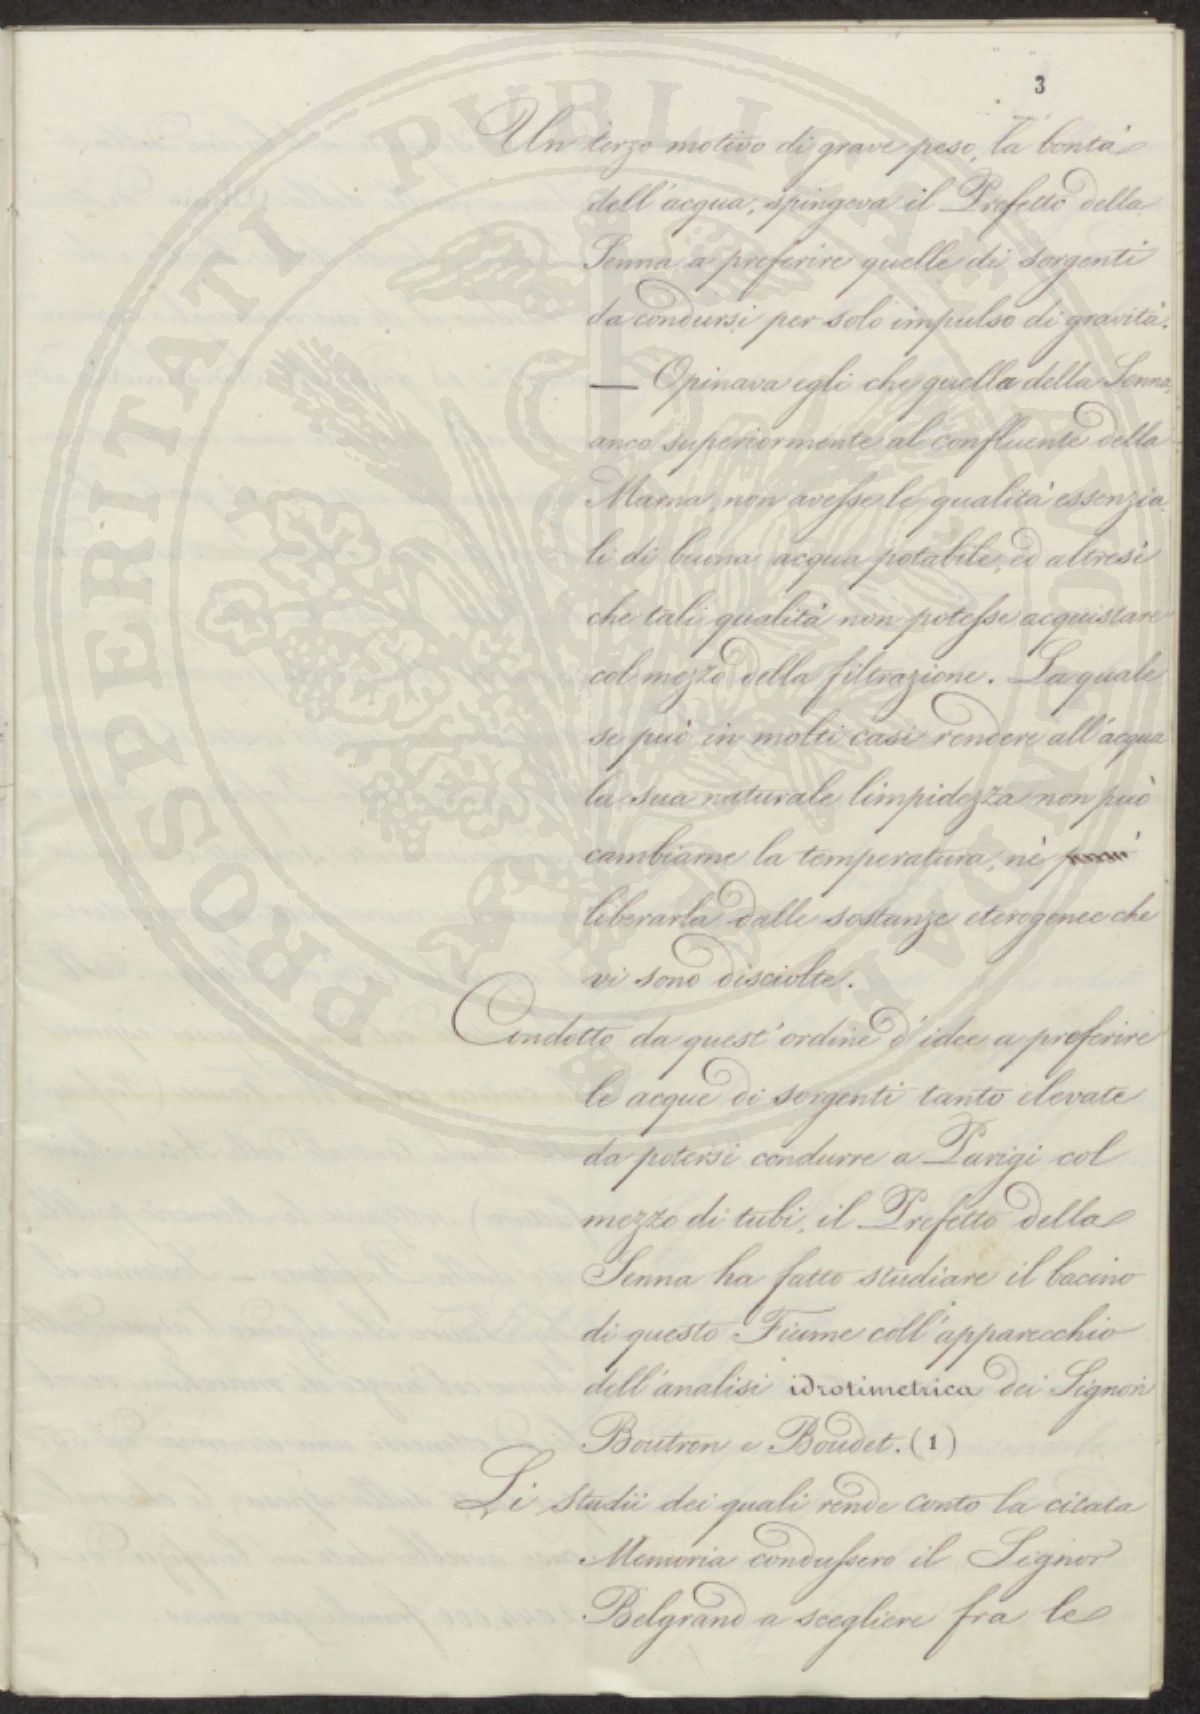 3
Un terzo motivo di grave peso, la bontà
dell'acqua, spingeva il Prefetto della
Senna a preferire quelle di sorgenti
da condursi per solo impulso di gravità.
— Opinava egli che quella della Senna,
anco superiormente al confluente della
Marna, non avesse le qualità essenzia
li di buona acqua potabile, ed altresì
che tali qualità non potesse acquistare
col mezzo della filtrazione. La quale
se può in molti casi rendere all'acqua
la sua naturale limpidezza non può
cambiarne la temperatura, nè
liberarla dalle sostanze eterogenee che
vi sono disciolte.
Condotto da quest'ordine d'idee a preferire
le acque di sorgenti tanto elevate
da potersi condurre a Parigi col
mezzo di tubi, il Prefetto della
Senna ha fatto studiare il bacino
di questo Fiume coll'apparecchio
dell'analisi idrotimetrica dei Signori
Boutron e Boudet. (1)
Li studii dei quali rende conto la citata
Memoria condussero il Signor
Belgrand a scegliere fra le
PROSPERITATI PUBLICAE